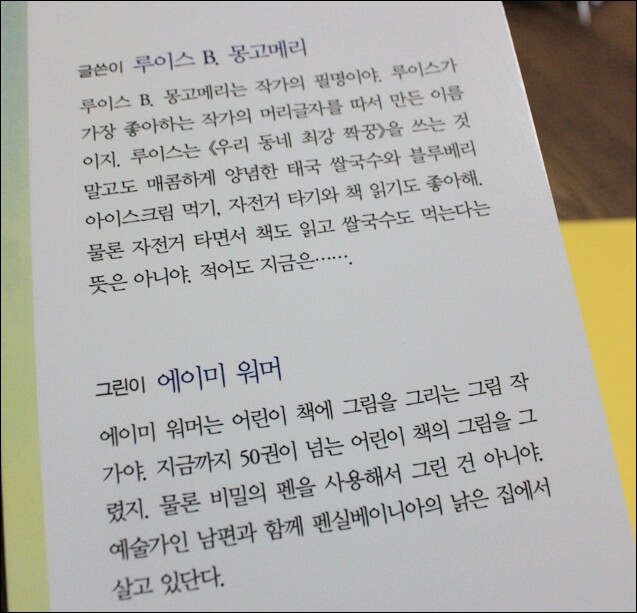 글쓴이 루이스 B. 몽고메리
루이스 B. 몽고메리는 작가의 필명이야. 루이스가
가장 좋아하는 작가의 머리글자를 따서 만든 이름
이지. 루이스는 《우리 동네 최강 짝꿍》을 쓰는 것
말고도 매콤하게 양념한 태국 쌀국수와 블루베리
아이스크림 먹기, 자전거 타기와 책 읽기도 좋아해.
물론 자전거 타면서 책도 읽고 쌀국수도 먹는다는
뜻은 아니야. 적어도 지금은…….
그린이 에이미 워머
에이미 워머는 어린이 책에 그림을 그리는 그림 작
가야. 지금까지 50권이 넘는 어린이 책의 그림을 그
렸지. 물론 비밀의 펜을 사용해서 그린 건 아니야.
예술가인 남편과 함께 펜실베이니아의 낡은 집에서
살고 있단다.